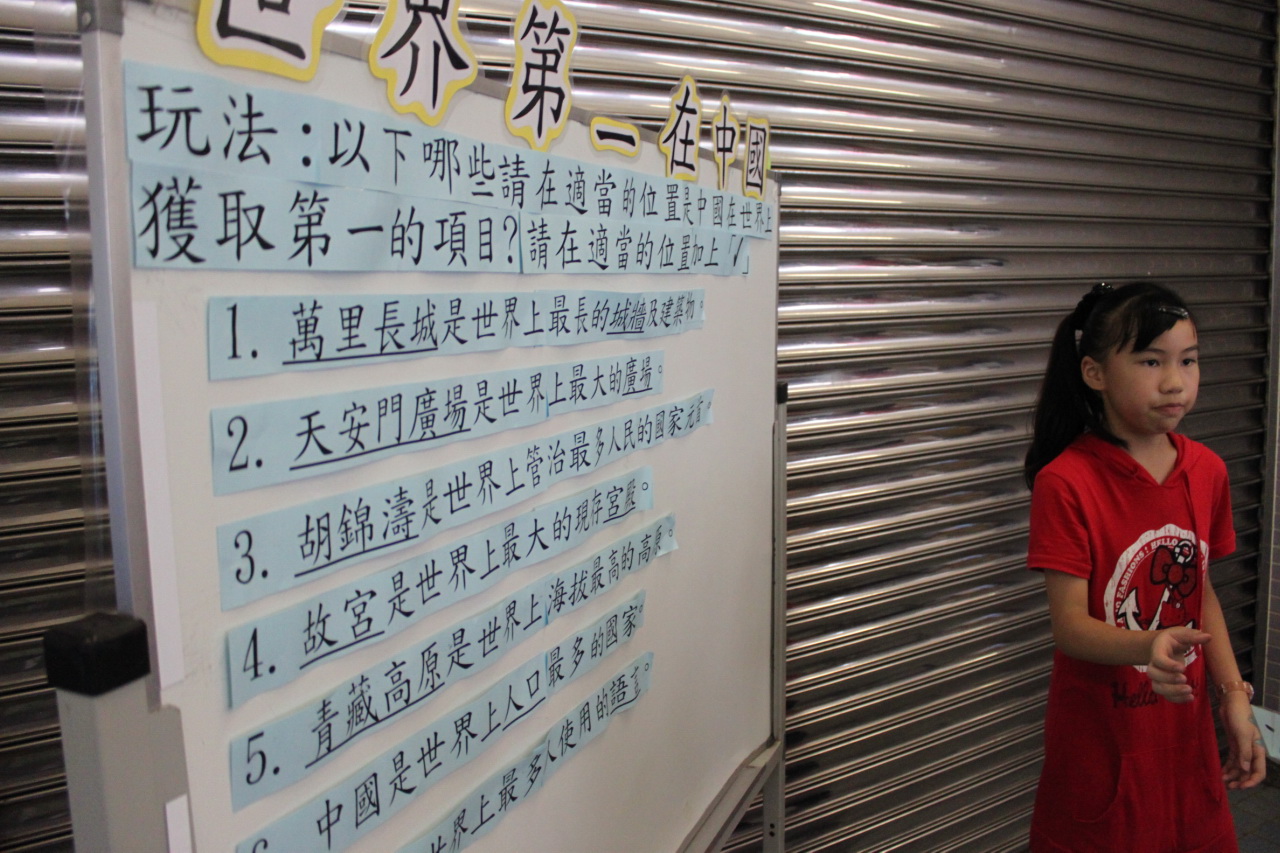 世界第一在中國
玩法：以下哪些請在適當的位置是中國在世界上
獲取第一的項目?請在適當的位置加上「✓」
1. 萬里長城是世界上最長的城牆及建築物。
2. 天安門廣場是世界上最大的廣場。
3. 胡錦濤是世界上管治最多人民的國家元首。
4. 故宮是世界上最大的現存宮殿。
5. 青藏高原是世界上海拔最高的高原。
6. 中國是世界上人口最多的國家。
世界上最多人使用的語言。
FASHIONS! HELLO
Hello